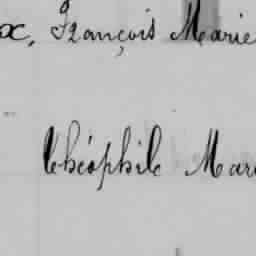 x, François Marie
Théophile Mar